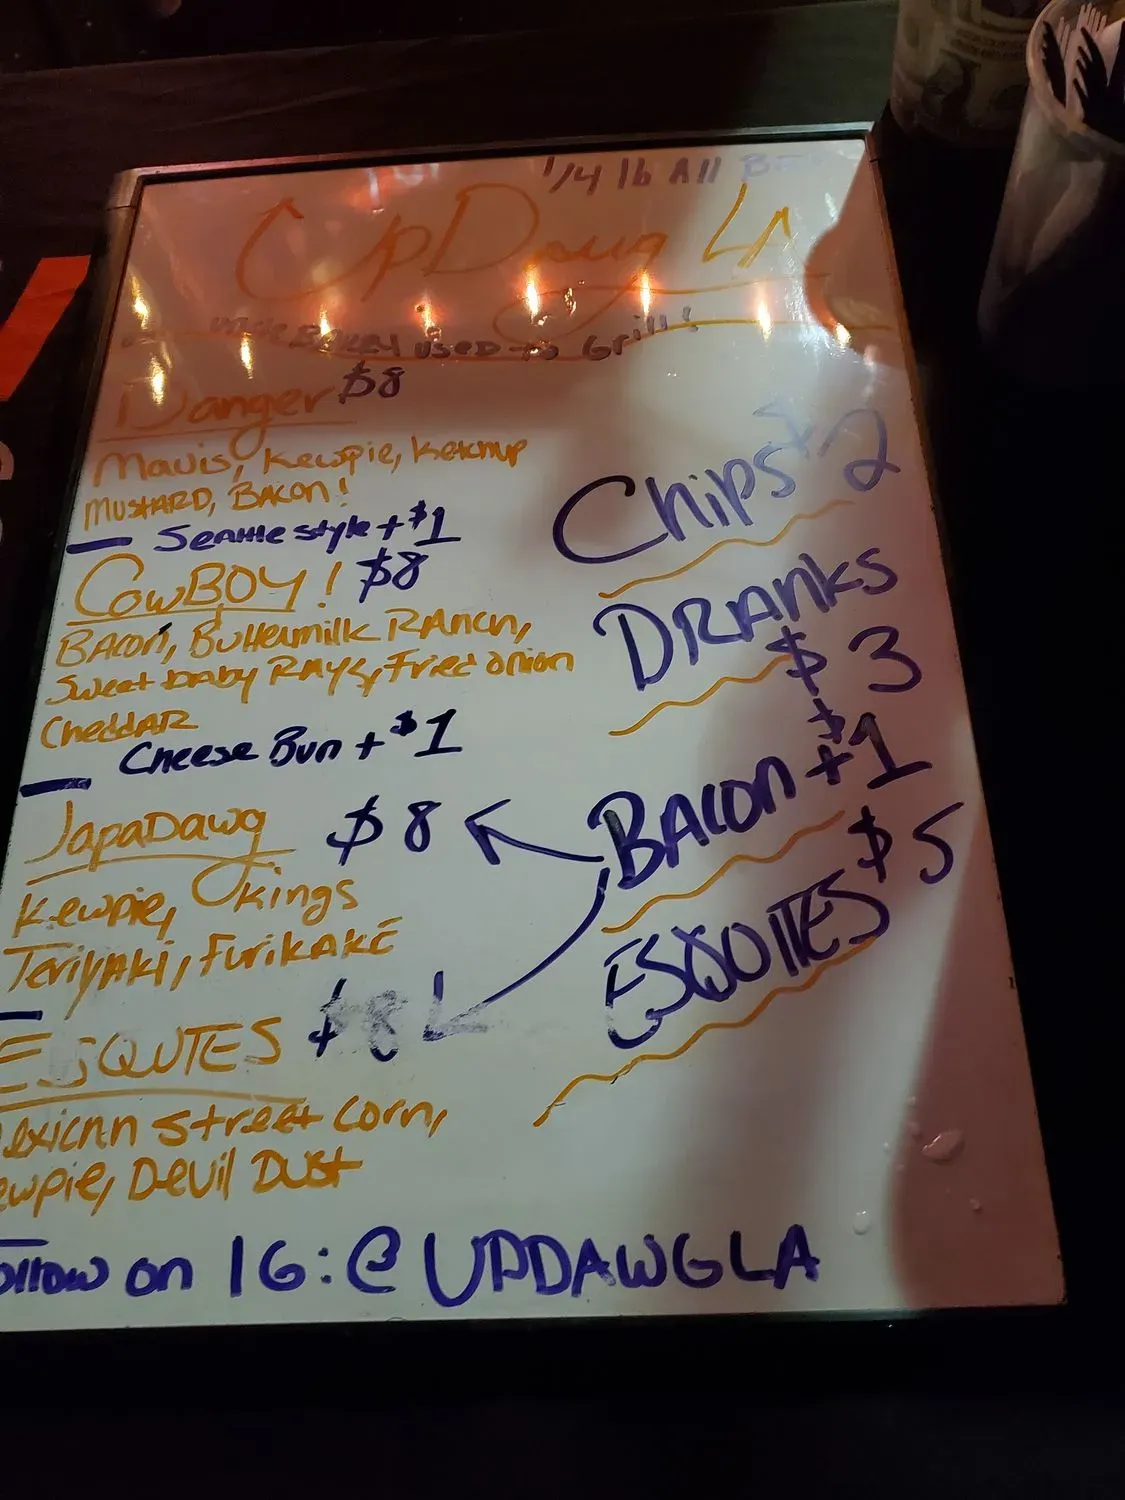 1/4 lb All
UpDawg LA
BACON used to Grill!
Danger $8
Mauis, Kewpie, Ketchup
MUSTARD, BACON!
— Seattle style + $1
COWBOY! $8
BACON, Buttermilk RANCH,
Sweet BABY RAYS, Fried onion
CheddAR
— Cheese Bun + $1
JapaDawg $8
Kewpie, Okings
TeriyAKi, FuriKAKE
ESQUTES $8
Street Corn,
Devil Dust
on IG: @UPDAWGLA
Chips $2
DRANKS
$3
BACON + $1
ESQUITES $5